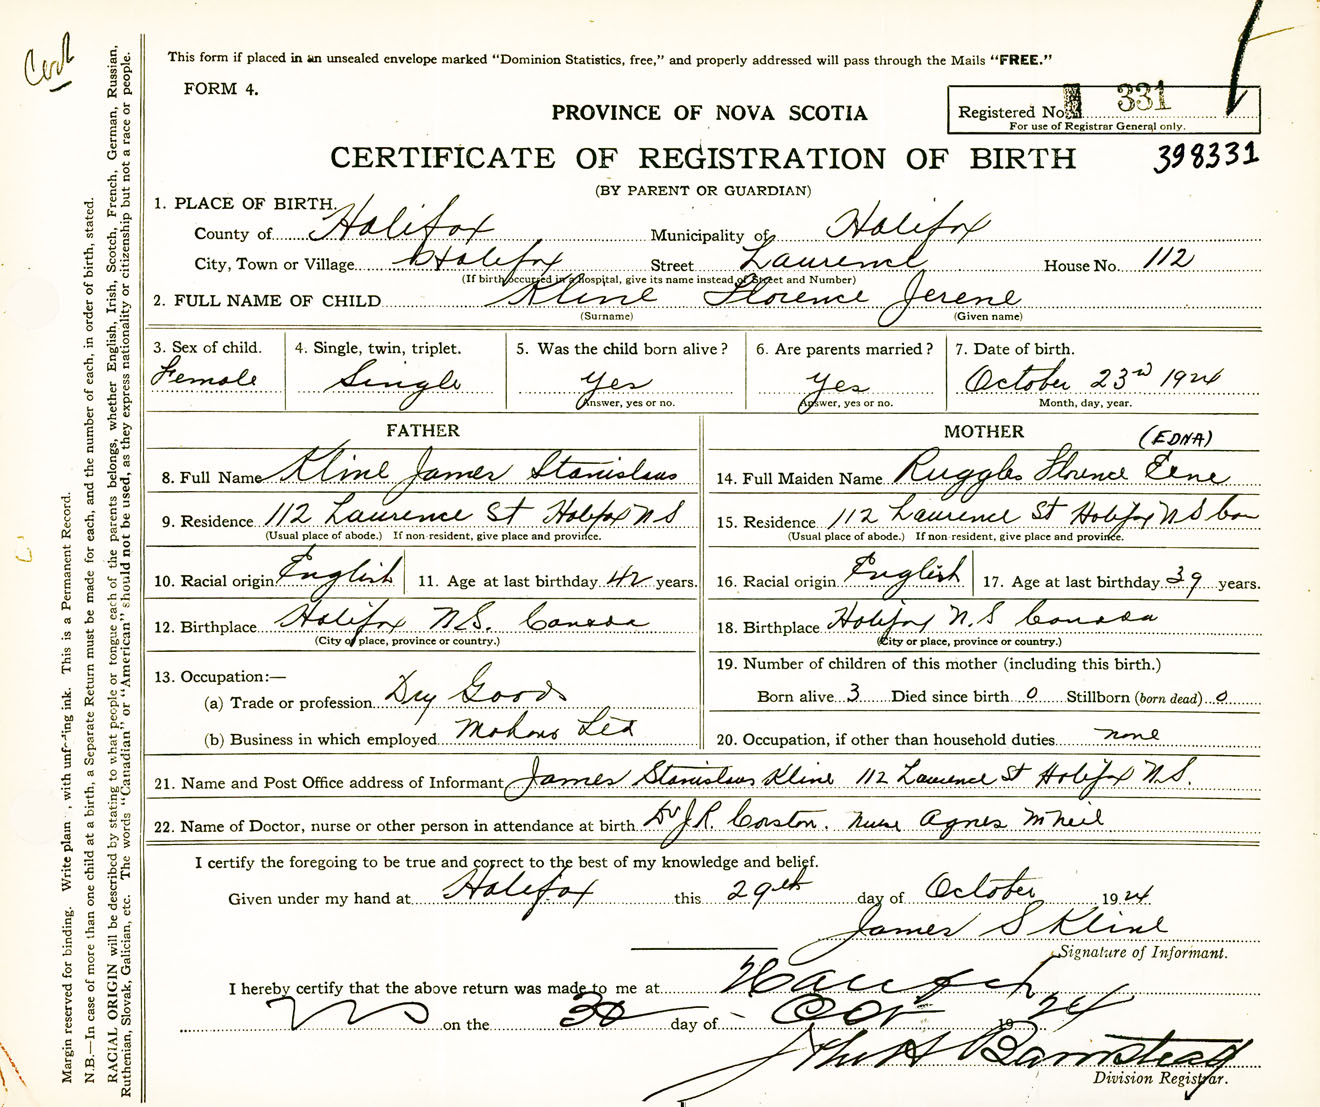 Cert
This form if placed in an unsealed envelope marked "Dominion Statistics, free," and properly addressed will pass through the Mails "FREE."
FORM 4.
PROVINCE OF NOVA SCOTIA
Registered No. 331
For use of Registrar General only.
CERTIFICATE OF REGISTRATION OF BIRTH
398331
(BY PARENT OR GUARDIAN)
1. PLACE OF BIRTH.
County of Halifax Municipality of Halifax
City, Town or Village Halifax Street Laurence House No. 112
(If birth occurred in a hospital, give its name instead of Street and Number)
2. FULL NAME OF CHILD Kline Florence Jerene
(Surname) (Given name)
3. Sex of child. 4. Single, twin, triplet. 5. Was the child born alive? 6. Are parents married? 7. Date of birth.
Female Single Yes Yes October 23rd 1924
Answer, yes or no. Answer, yes or no. Month, day, year.
FATHER
8. Full Name Kline James Stanislaus
9. Residence 112 Laurence St Halifax N S
(Usual place of abode.) If non-resident, give place and province.
10. Racial origin English 11. Age at last birthday 42 years.
12. Birthplace Halifax N.S. Canada
(City or place, province or country.)
13. Occupation:—
(a) Trade or profession Dry Goods
(b) Business in which employed Mahons Ltd
MOTHER
(EDNA)
14. Full Maiden Name Ruggles Florence Eene
15. Residence 112 Laurence St Halifax N S Can
(Usual place of abode.) If non-resident, give place and province.
16. Racial origin English 17. Age at last birthday 39 years.
18. Birthplace Halifax N.S Canada
(City or place, province or country.)
19. Number of children of this mother (including this birth.)
Born alive 3 Died since birth 0 Stillborn (born dead) 0
20. Occupation, if other than household duties none
21. Name and Post Office address of Informant James Stanislaus Kline 112 Laurence St Halifax N.S.
22. Name of Doctor, nurse or other person in attendance at birth. Dr J.R. Corston. Nurse Agnes McNeil
I certify the foregoing to be true and correct to the best of my knowledge and belief.
Given under my hand at Halifax this 29th day of October 1924
James S Kline
Signature of Informant.
I hereby certify that the above return was made to me at
N S on the 30 day of Oct 1924
Barnstead
Division Registrar.
Margin reserved for binding. Write plain , with unf ing ink. This is a Permanent Record.
N.B.—In case of more than one child at a birth, a Separate Return must be made for each, and the number of each, in order of birth, stated.
RACIAL ORIGIN will be described by stating to what people or tongue each of the parents belongs, whether English, Irish, Scotch, French, German, Russian,
Ruthenian, Slovak, Galician, etc. The words "Canadian" or "American" should not be used, as they express nationality or citizenship but not a race or people.